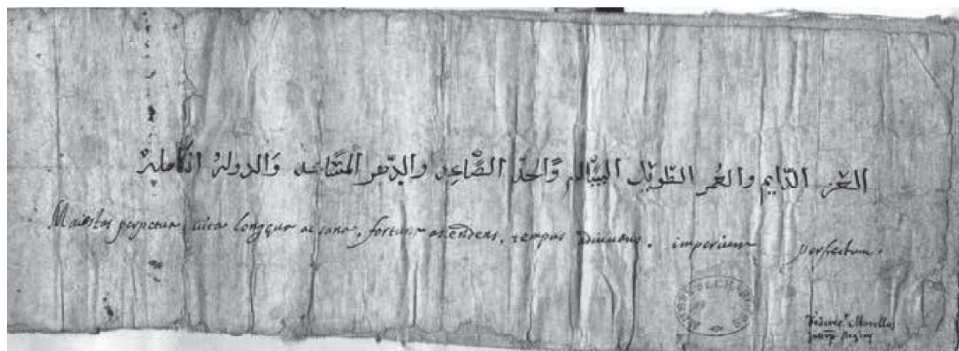 العز الدايم والعمر الطويل السالم والجد الصاعد والدهر المساعد والدولة الكاملة
Maiestas perpetua, vita longęua ac sana, fortuna ascendens, tempus adiuuans, imperium perfectum.
Federic. Morellus